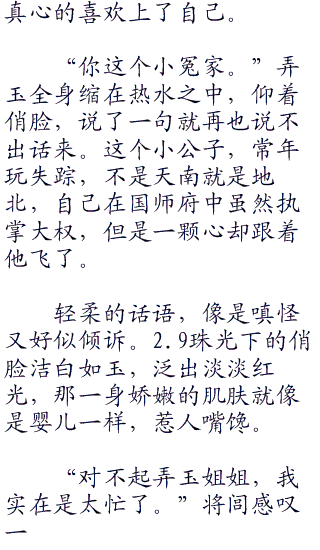 真心的喜欢上了自己。
“你这个小冤家。”弄
玉全身缩在热水之中，仰着
俏脸，说了一句就再也说不
出话来。这个小公子，常年
玩失踪，不是天南就是地
北，自己在国师府中虽然执
掌大权，但是一颗心却跟着
他飞了。
轻柔的话语，像是嗔怪
又好似倾诉。2.9珠光下的俏
脸洁白如玉，泛出淡淡红
光，那一身娇嫩的肌肤就像
是婴儿一样，惹人嘴馋。
“对不起弄玉姐姐，我
实在是太忙了。”将闾感叹
一